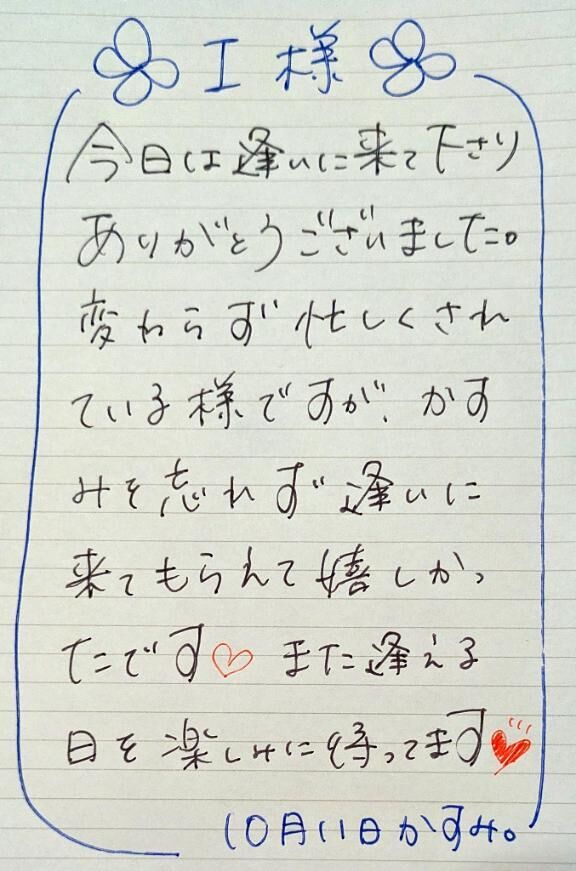 I 様
今日は逢いに来て下さり
ありがとうございました。
変わらず忙しくされ
ている様ですが、かす
みを忘れず逢いに
来てもらえて嬉しかっ
たです♡ また逢える
日を楽しみに待ってます♥
10月11日かすみ。